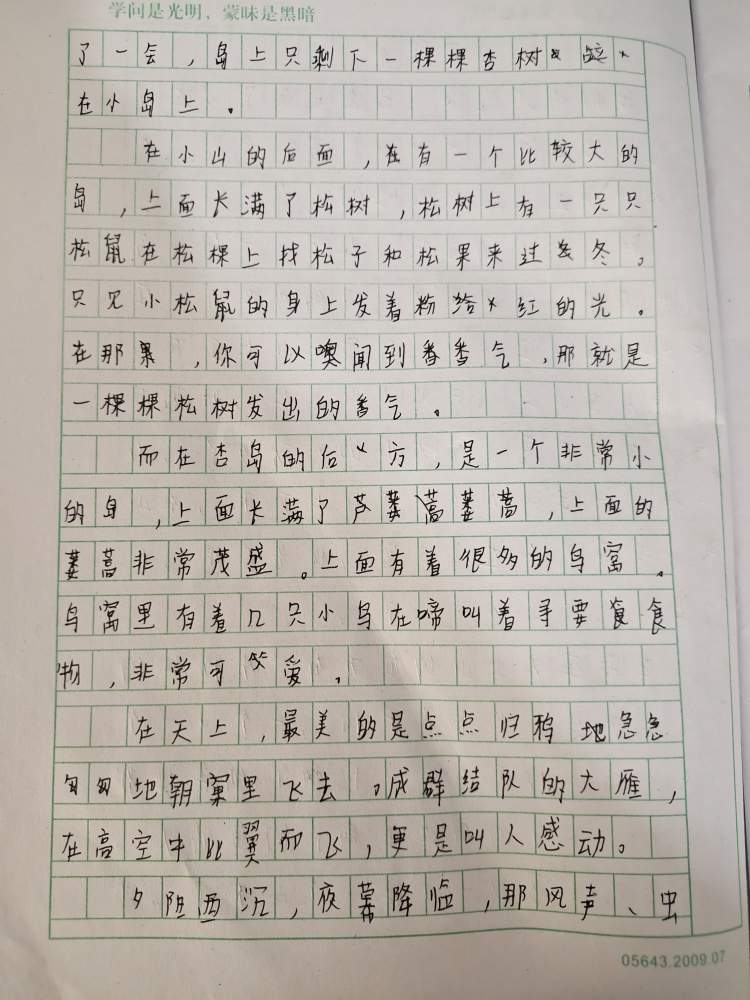 学问是光明，蒙昧是黑暗
了一会，岛上只剩下一棵棵杏树
在小岛上。
在小山的后面，在有一个比较大的
岛，上面长满了松树，松树上有一只只
松鼠在松棵上找松子和松果来过冬。
只见小松鼠的身上发着粉给红的光。
在那累，你可以噢闻到香香气，那就是
一棵棵松树发出的香气。
而在杏岛的后方，是一个非常小
的身，上面长满了芦蒌蒿蒌蒿，上面的
蒌蒿非常茂盛。上面有着很多的鸟窝。
鸟窝里有着几只小鸟在啼叫着寻要食
物，非常可爱。
在天上，最美的是点点归鸦地急急
匆匆地朝窠里飞去。成群结队的大雁，
在高空中比翼而飞，更是叫人感动。
夕阳西沉，夜幕降临，那风声、虫
05643.2009.07